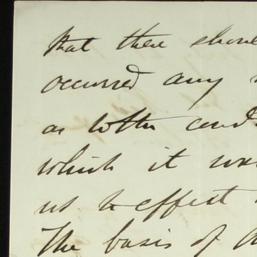 that there shou
occurred any
as to the cond
which it wa
us to effect
The basis of a